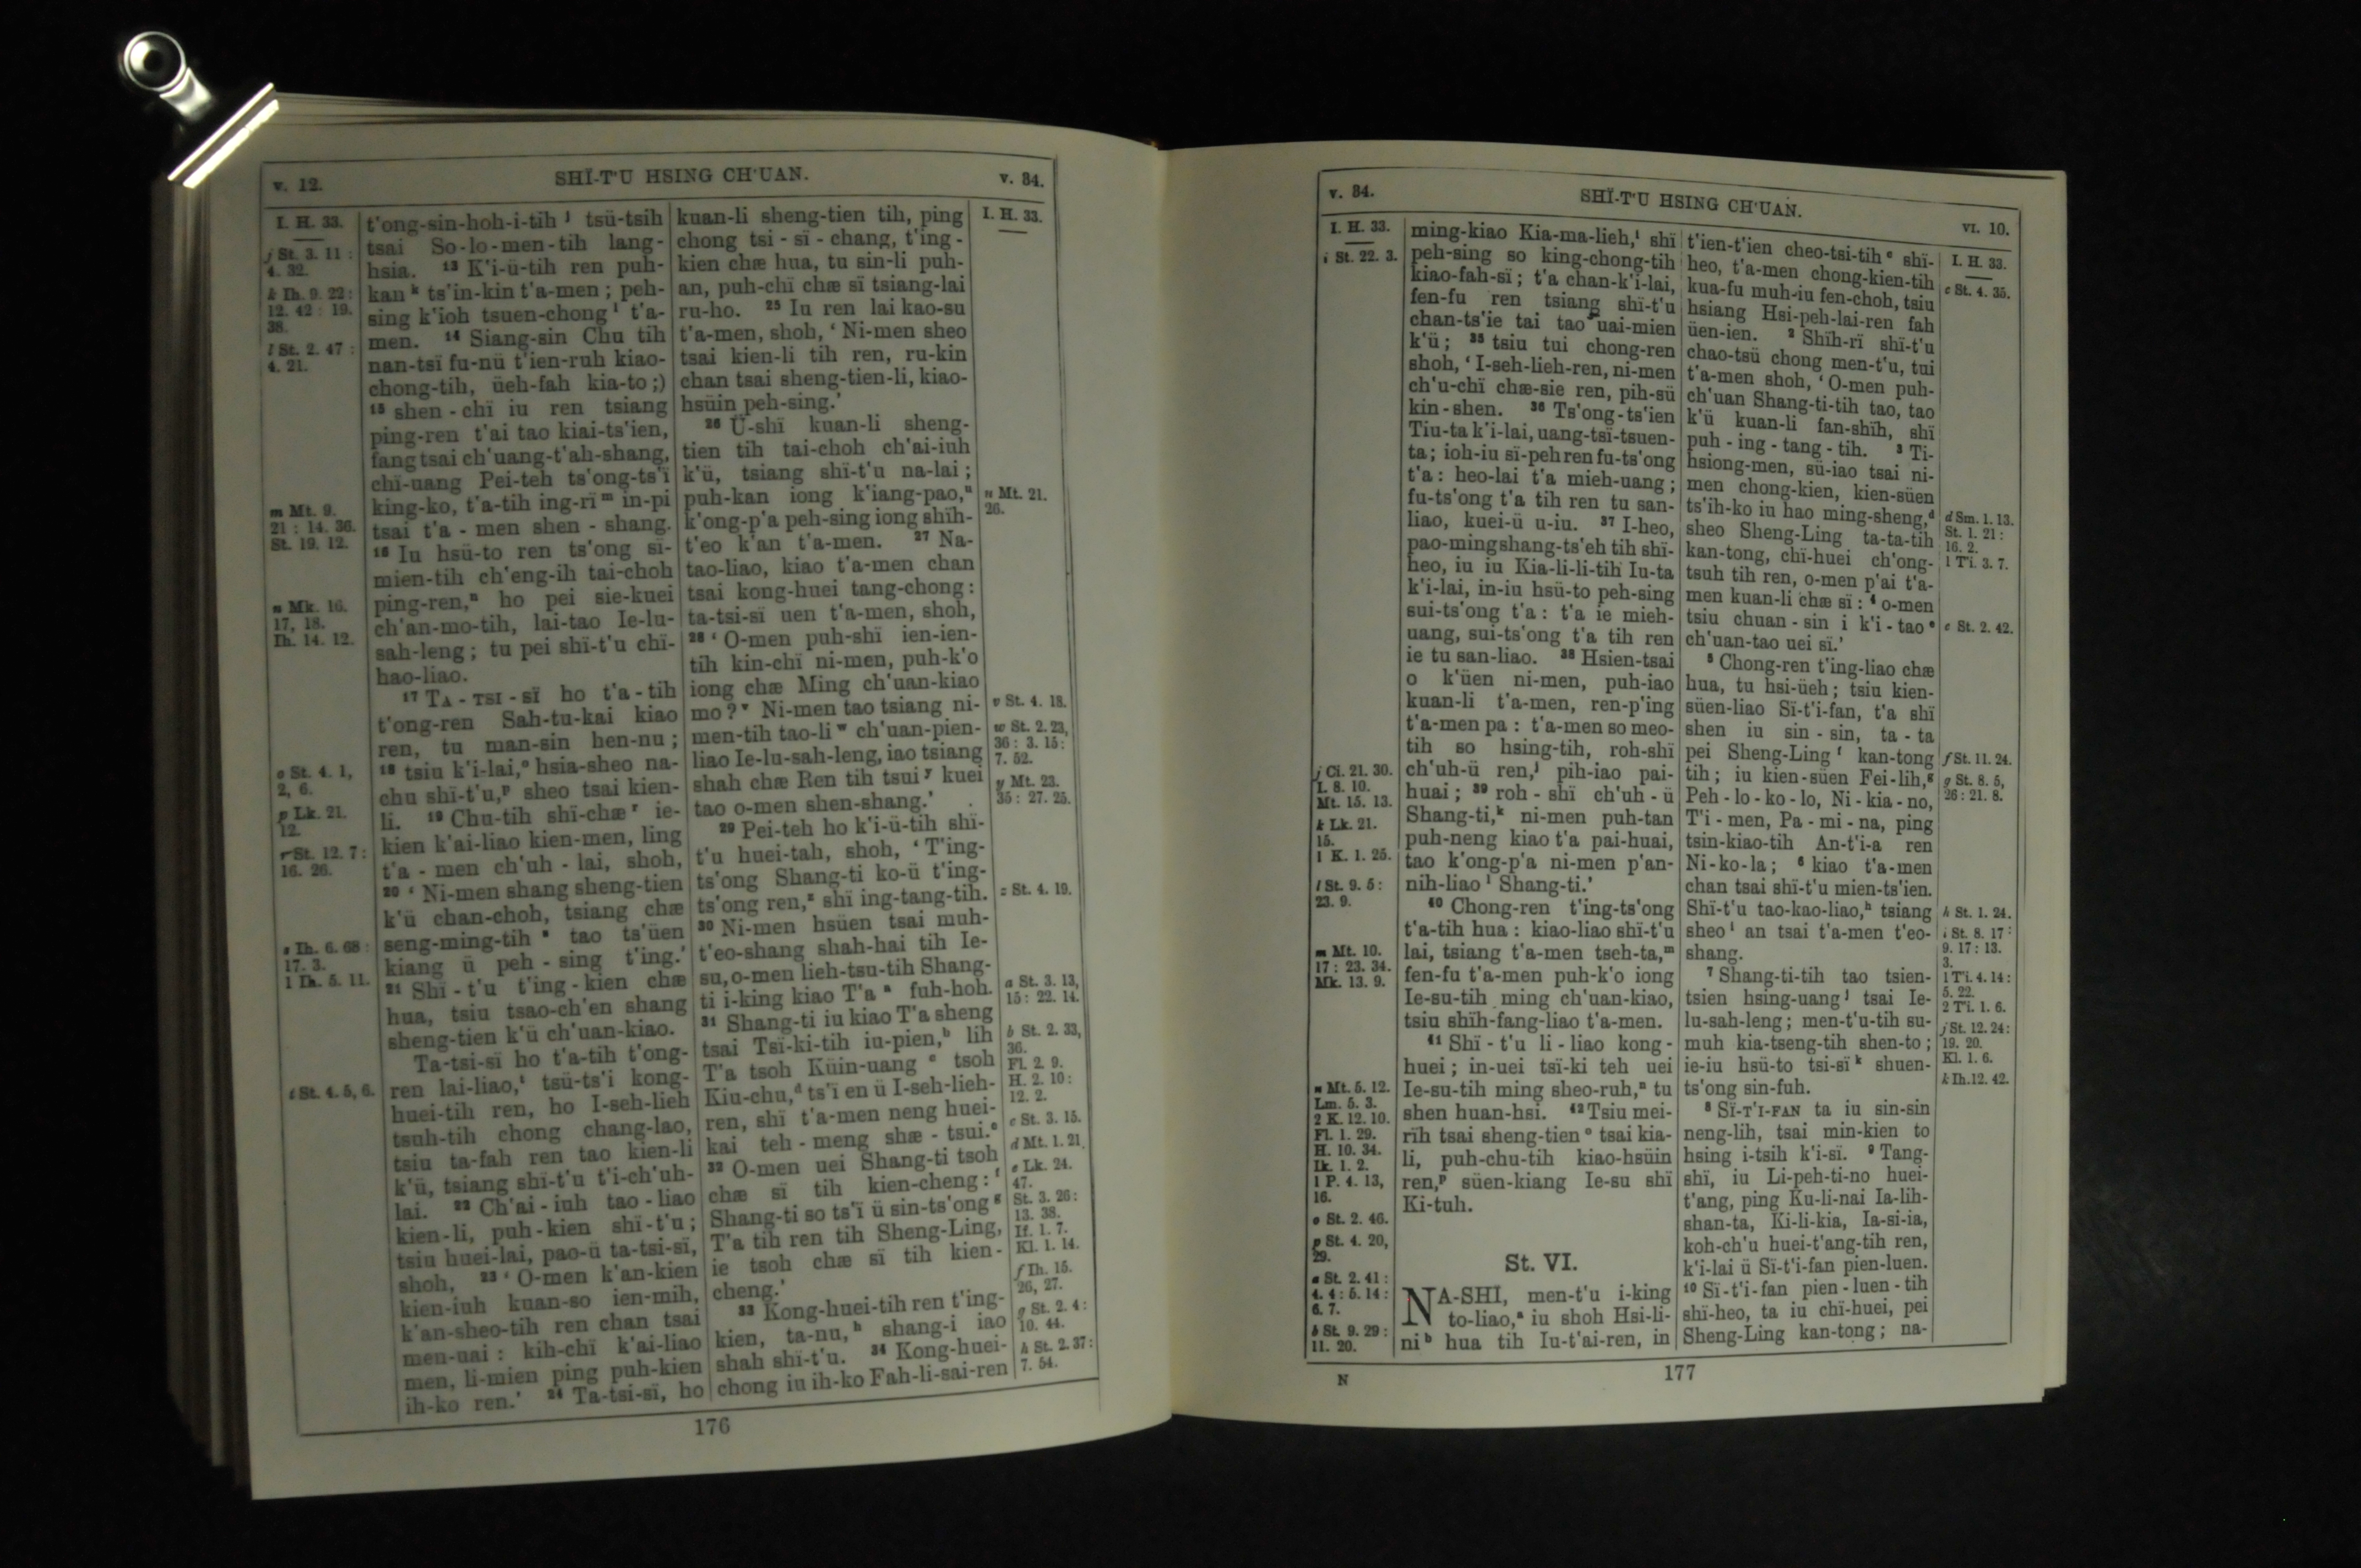 v. 12.
SHÏ-T'U HSING CH'UAN.
v. 34.
I. H. 33.
j St. 3. 11 :
4. 32.
k Ih. 9. 22 :
12. 42 : 19.
38.
l St. 2. 47 :
4. 21.
m Mt. 9.
21 : 14. 36.
St. 19. 12.
n Mk. 16.
17, 18.
Ih. 14. 12.
o St. 4. 1,
2, 6.
p Lk. 21.
12.
r St. 12. 7 :
16. 26.
s Ih. 6. 68 :
17. 3.
1 Ih. 5. 11.
t St. 4. 5, 6.
t'ong-sin-hoh-i-tih j tsü-tsih
tsai So-lo-men-tih lang-
hsia. 13 K'i-ü-tih ren puh-
kan k ts'in-kin t'a-men; peh-
sing k'ioh tsuen-chong l t'a-
men. 14 Siang-sin Chu tih
nan-tsï fu-nü t'ien-ruh kiao-
chong-tih, üeh-fah kia-to;)
15 shen-chï iu ren tsiang
ping-ren t'ai tao kiai-ts'ien,
fang tsai ch'uang-t'ah-shang,
chï-uang Pei-teh ts'ong-ts'ï
king-ko, t'a-tih ing-rï m in-pi
tsai t'a-men shen-shang.
16 Iu hsü-to ren ts'ong sï-
mien-tih ch'eng-ih tai-choh
ping-ren, n ho pei sie-kuei
ch'an-mo-tih, lai-tao Ie-lu-
sah-leng; tu pei shï-t'u chï-
hao-liao.
17 TA-TSI-SÏ ho t'a-tih
t'ong-ren Sah-tu-kai kiao
ren, tu man-sin hen-nu;
18 tsiu k'i-lai, o hsia-sheo na-
chu shï-t'u, p sheo tsai kien-
li. 19 Chu-tih shï-chæ r ie-
kien k'ai-liao kien-men, ling
t'a-men ch'uh-lai, shoh,
20 ‘Ni-men shang sheng-tien
k'ü chan-choh, tsiang chæ
seng-ming-tih s tao ts'üen
kiang ü peh-sing t'ing.’
21 Shï-t'u t'ing-kien chæ
hua, tsiu tsao-ch'en shang
sheng-tien k'ü ch'uan-kiao.
Ta-tsi-sï ho t'a-tih t'ong-
ren lai-liao, t tsü-ts'i kong-
huei-tih ren, ho I-seh-lieh
tsuh-tih chong chang-lao,
tsiu ta-fah ren tao kien-li
k'ü, tsiang shï-t'u t'i-ch'uh-
lai. 22 Ch'ai-iuh tao-liao
kien-li, puh-kien shï-t'u;
tsiu huei-lai, pao-ü ta-tsi-sï,
shoh, 23 ‘O-men k'an-kien
kien-iuh kuan-so ien-mih,
k'an-sheo-tih ren chan tsai
men-uai: kih-chï k'ai-liao
men, li-mien ping puh-kien
ih-ko ren.’ 24 Ta-tsi-sï, ho
kuan-li sheng-tien tih, ping
chong tsi-sï-chang, t'ing-
kien chæ hua, tu sin-li puh-
an, puh-chï chæ sï tsiang-lai
ru-ho. 25 Iu ren lai kao-su
t'a-men, shoh, ‘Ni-men sheo
tsai kien-li tih ren, ru-kin
chan tsai sheng-tien-li, kiao-
hsüin peh-sing.’
26 Ü-shï kuan-li sheng-
tien tih tai-choh ch'ai-iuh
k'ü, tsiang shï-t'u na-lai;
puh-kan iong k'iang-pao, u
k'ong-p'a peh-sing iong shïh-
t'eo k'an t'a-men. 27 Na-
tao-liao, kiao t'a-men chan
tsai kong-huei tang-chong:
ta-tsi-sï uen t'a-men, shoh,
28 ‘O-men puh-shï ien-ien-
tih kin-chï ni-men, puh-k'o
iong chæ Ming ch'uan-kiao
mo? v Ni-men tao tsiang ni-
men-tih tao-li w ch'uan-pien-
liao Ie-lu-sah-leng, iao tsiang
shah chæ Ren tih tsui y kuei
tao o-men shen-shang.’
29 Pei-teh ho k'i-ü-tih shï-
t'u huei-tah, shoh, ‘T'ing-
ts'ong Shang-ti ko-ü t'ing-
ts'ong ren, z shï ing-tang-tih.
30 Ni-men hsüen tsai muh-
t'eo-shang shah-hai tih Ie-
su, o-men lieh-tsu-tih Shang-
ti i-king kiao T'a a fuh-hoh.
31 Shang-ti iu kiao T'a sheng
tsai Tsï-ki-tih iu-pien, b lih
T'a tsoh Küin-uang c tsoh
Kiu-chu, d ts'ï en ü I-seh-lieh-
ren, shï t'a-men neng huei-
kai teh-meng shæ-tsui. e
32 O-men uei Shang-ti tsoh
chæ sï tih kien-cheng: f
Shang-ti so ts'ï ü sin-ts'ong g
T'a tih ren tih Sheng-Ling,
ie tsoh chæ sï tih kien-
cheng.’
33 Kong-huei-tih ren t'ing-
kien, ta-nu, h shang-i iao
shah shï-t'u. 34 Kong-huei-
chong iu ih-ko Fah-li-sai-ren
I. H. 33.
u Mt. 21.
26.
v St. 4. 18.
w St. 2. 23,
36 : 3. 15 :
7. 52.
y Mt. 23.
35 : 27. 25.
z St. 4. 19.
a St. 3. 13,
15 : 22. 14.
b St. 2. 33,
36.
Fl. 2. 9.
H. 2. 10 :
12. 2.
c St. 3. 15.
d Mt. 1. 21.
e Lk. 24.
47.
St. 3. 26 :
13. 38.
If. 1. 7.
Kl. 1. 14.
f Ih. 15.
26, 27.
g St. 2. 4 :
10. 44.
h St. 2. 37 :
7. 54.
176
v. 34.
SHÏ-T'U HSING CH'UAN.
VI. 10.
I. H. 33.
i St. 22. 3.
j Ci. 21. 30.
I. 8. 10.
Mt. 15. 13.
k Lk. 21.
15.
1 K. 1. 25.
l St. 9. 5 :
23. 9.
m Mt. 10.
17 : 23. 34.
Mk. 13. 9.
n Mt. 5. 12.
Lm. 5. 3.
2 K. 12. 10.
Fl. 1. 29.
H. 10. 34.
Ik. 1. 2.
1 P. 4. 13,
16.
o St. 2. 46.
p St. 4. 20,
29.
a St. 2. 41 :
4. 4 : 5. 14 :
6. 7.
b St. 9. 29 :
11. 20.
ming-kiao Kia-ma-lieh, i shï
peh-sing so king-chong-tih
kiao-fah-sï; t'a chan-k'i-lai,
fen-fu ren tsiang shï-t'u
chan-ts'ie tai tao uai-mien
k'ü; 35 tsiu tui chong-ren
shoh, ‘I-seh-lieh-ren, ni-men
ch'u-chï chæ-sie ren, pih-sü
kin-shen. 36 Ts'ong-ts'ien
Tiu-ta k'i-lai, uang-tsï-tsuen-
ta; ioh-iu sï-peh ren fu-ts'ong
t'a: heo-lai t'a mieh-uang;
fu-ts'ong t'a tih ren tu san-
liao, kuei-ü u-iu. 37 I-heo,
pao-ming shang-ts'eh tih shï-
heo, iu iu Kia-li-li-tih Iu-ta
k'i-lai, in-iu hsü-to peh-sing
sui-ts'ong t'a: t'a ie mieh-
uang, sui-ts'ong t'a tih ren
ie tu san-liao. 38 Hsien-tsai
o k'üen ni-men, puh-iao
kuan-li t'a-men, ren-p'ing
t'a-men pa: t'a-men so meo-
tih so hsing-tih, roh-shï
ch'uh-ü ren, j pih-iao pai-
huai; 39 roh-shï ch'uh-ü
Shang-ti, k ni-men puh-tan
puh-neng kiao t'a pai-huai,
tao k'ong-p'a ni-men p'an-
nih-liao l Shang-ti.’
40 Chong-ren t'ing-ts'ong
t'a-tih hua: kiao-liao shï-t'u
lai, tsiang t'a-men tseh-ta, m
fen-fu t'a-men puh-k'o iong
Ie-su-tih ming ch'uan-kiao,
tsiu shïh-fang-liao t'a-men.
41 Shï-t'u li-liao kong-
huei; in-uei tsï-ki teh uei
Ie-su-tih ming sheo-ruh, n tu
shen huan-hsi. 42 Tsiu mei-
rïh tsai sheng-tien o tsai kia-
li, puh-chu-tih kiao-hsüin
ren, p süen-kiang Ie-su shï
Ki-tuh.
St. VI.
NA-SHI, men-t'u i-king
to-liao, a iu shoh Hsi-li-
ni b hua tih Iu-t'ai-ren, in
t'ien-t'ien cheo-tsi-tih c shï-
heo, t'a-men chong-kien-tih
kua-fu muh-iu fen-choh, tsiu
hsiang Hsi-peh-lai-ren fah
üen-ien. 2 Shïh-rï shï-t'u
chao-tsü chong men-t'u, tui
t'a-men shoh, ‘O-men puh-
ch'uan Shang-ti-tih tao, tao
k'ü kuan-li fan-shïh, shï
puh-ing-tang-tih. 3 Ti-
hsiong-men, sü-iao tsai ni-
men chong-kien, kien-süen
ts'ih-ko iu hao ming-sheng, d
sheo Sheng-Ling ta-ta-tih
kan-tong, chï-huei ch'ong-
tsuh tih ren, o-men p'ai t'a-
men kuan-li chæ sï: 4 o-men
tsiu chuan-sin i k'i-tao e
ch'uan-tao uei sï.’
5 Chong-ren t'ing-liao chæ
hua, tu hsi-üeh; tsiu kien-
süen-liao Sï-t'i-fan, t'a shï
shen iu sin-sin, ta-ta
pei Sheng-Ling f kan-tong
tih; iu kien-süen Fei-lih, g
Peh-lo-ko-lo, Ni-kia-no,
T'i-men, Pa-mi-na, ping
tsin-kiao-tih An-t'i-a ren
Ni-ko-la; 6 kiao t'a-men
chan tsai shï-t'u mien-ts'ien.
Shï-t'u tao-kao-liao, h tsiang
sheo i an tsai t'a-men t'eo-
shang.
7 Shang-ti-tih tao tsien-
tsien hsing-uang j tsai Ie-
lu-sah-leng; men-t'u-tih su-
muh kia-tseng-tih shen-to;
ie-iu hsü-to tsi-sï k shuen-
ts'ong sin-fuh.
8 SÏ-T'I-FAN ta iu sin-sin
neng-lih, tsai min-kien to
hsing i-tsih k'i-sï. 9 Tang-
shï, iu Li-peh-ti-no huei-
t'ang, ping Ku-li-nai Ia-lih-
shan-ta, Ki-li-kia, Ia-si-ia,
koh-ch'u huei-t'ang-tih ren,
k'i-lai ü Sï-t'i-fan pien-luen.
10 Sï-t'i-fan pien-luen-tih
shï-heo, ta iu chï-huei, pei
Sheng-Ling kan-tong; na-
I. H. 33.
c St. 4. 35.
d Sm. 1. 13.
St. 1. 21 :
16. 2.
1 Ti. 3. 7.
e St. 2. 42.
f St. 11. 24.
g St. 8. 5,
26 : 21. 8.
h St. 1. 24.
i St. 8. 17 :
9. 17 : 13.
3.
1 Ti. 4. 14 :
5. 22.
2 Ti. 1. 6.
j St. 12. 24 :
19. 20.
Kl. 1. 6.
k Ih. 12. 42.
N
177